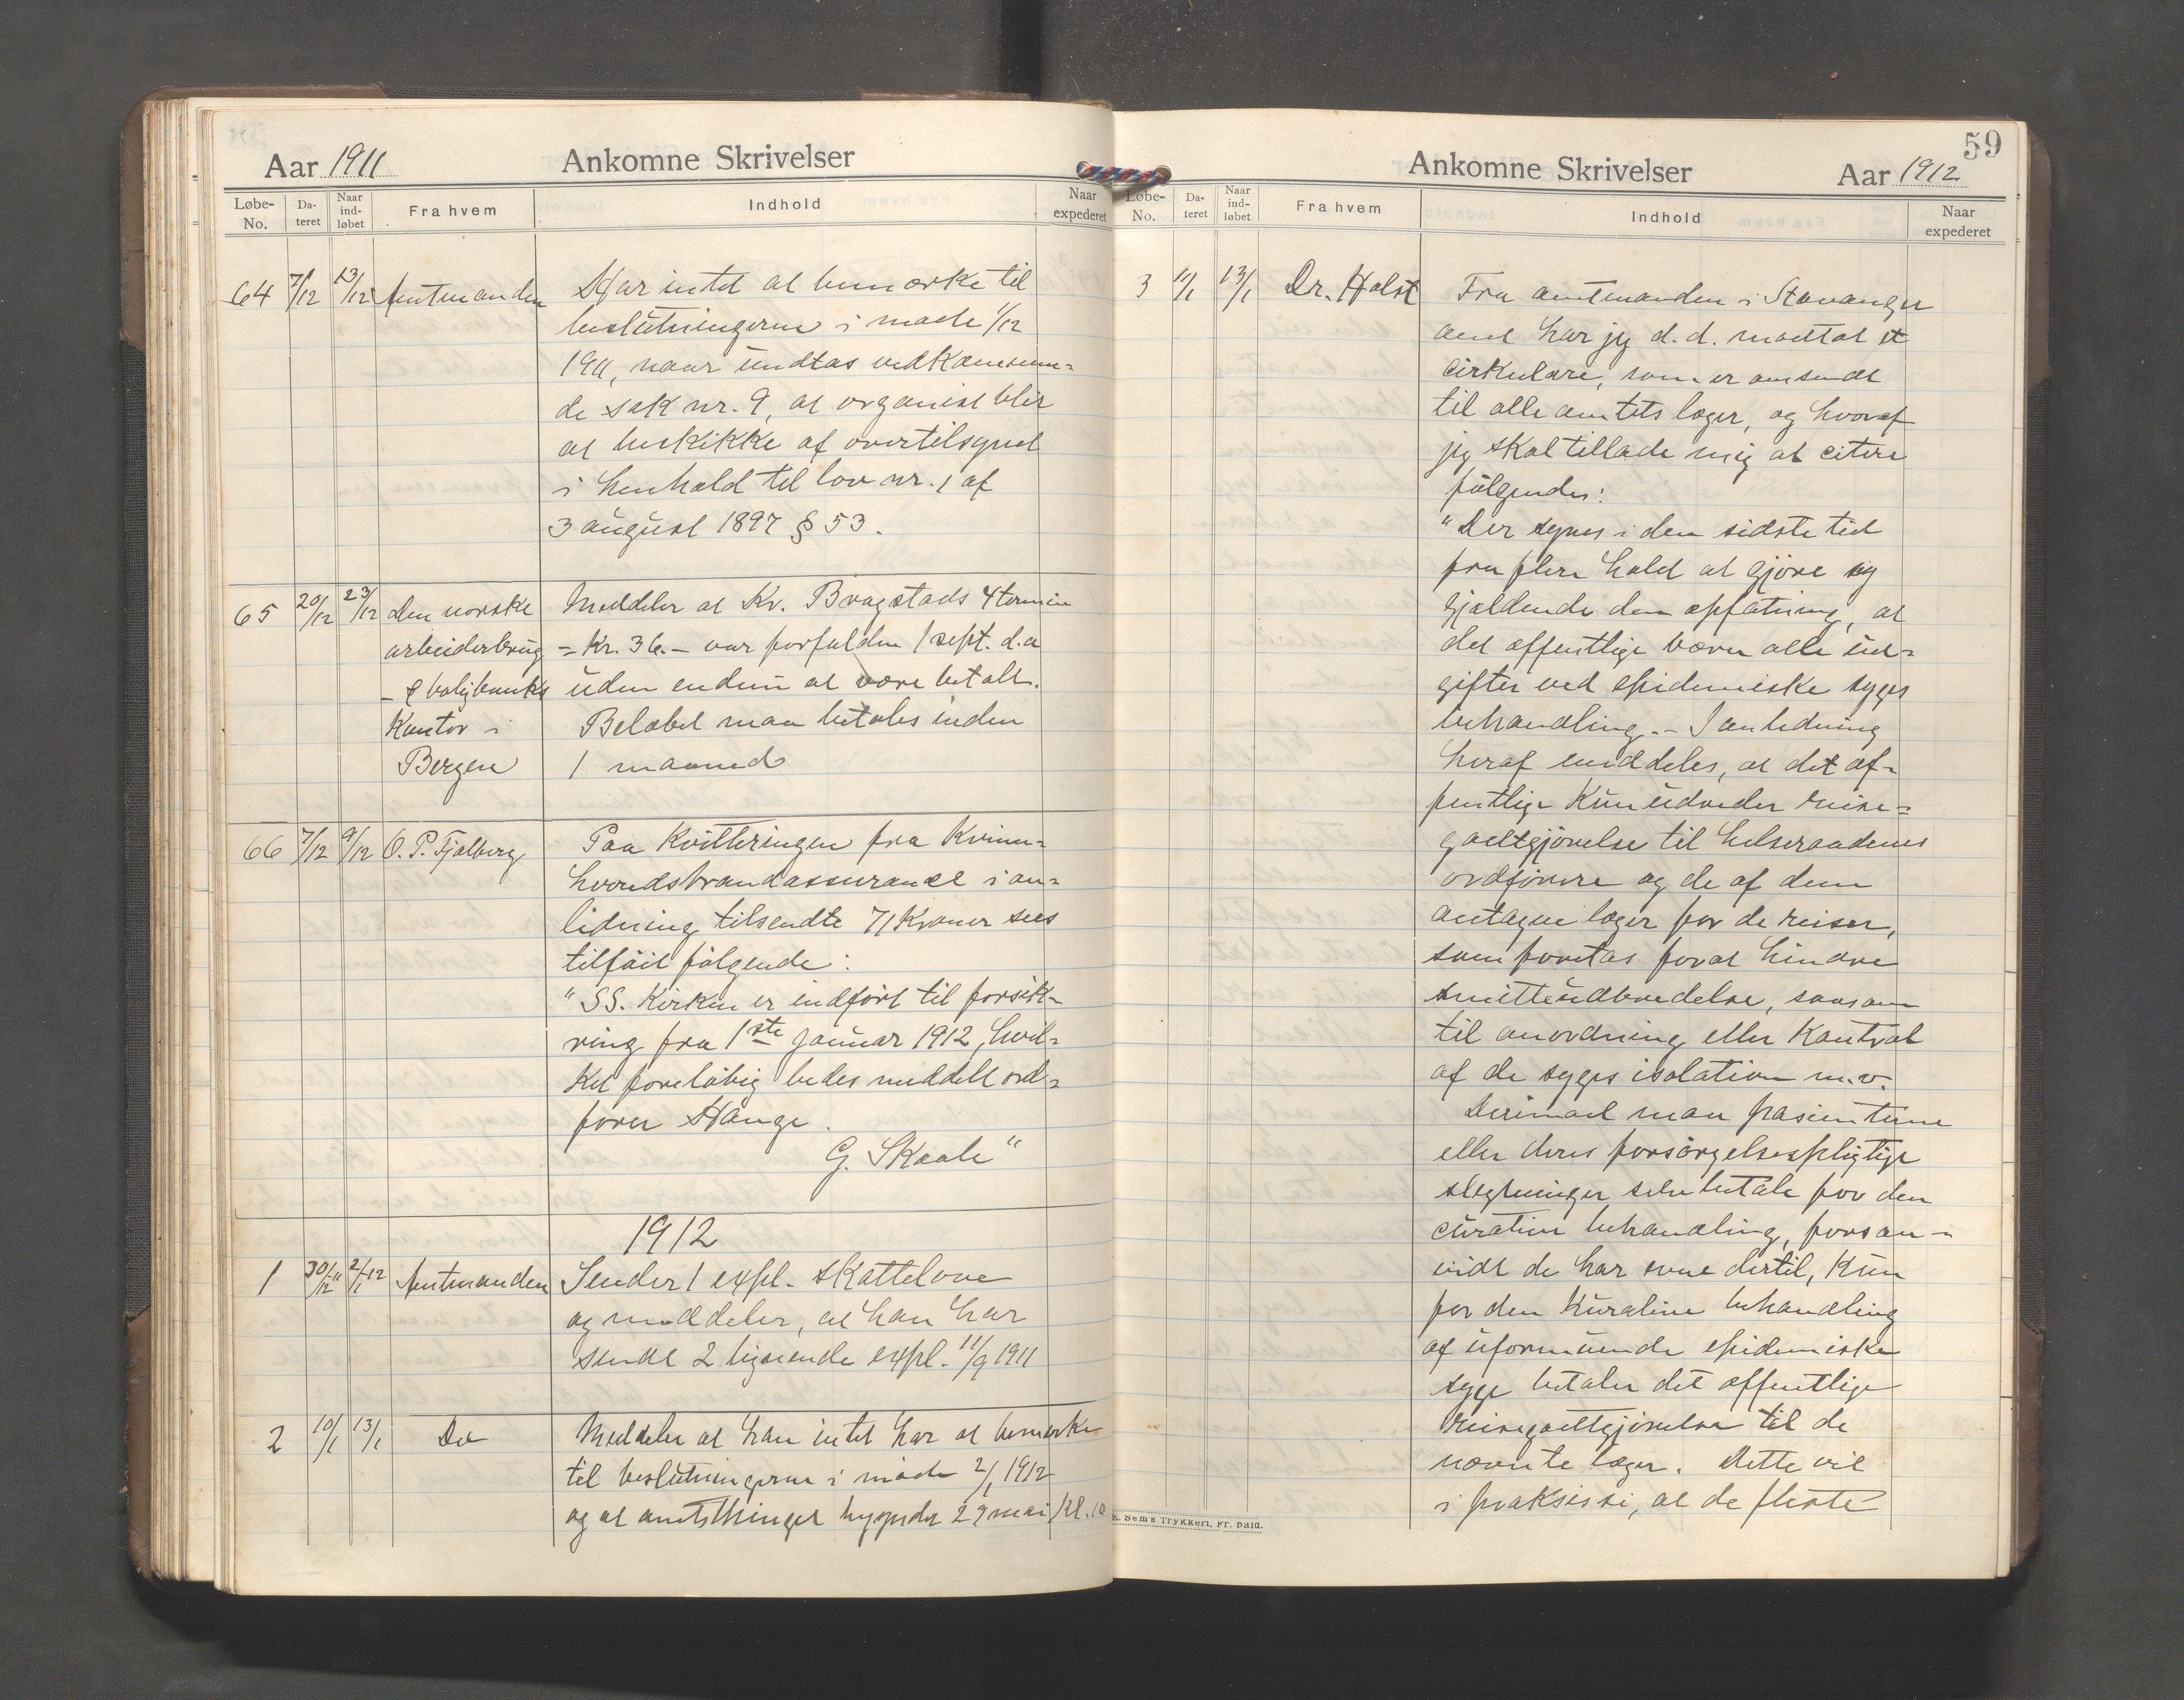 Aar 1911 Ankomne Skrivelser
Løbe-No. Da-teret Naar ind-løbet Fra hvem Indhold Naar expederet
64 7/12 13/12 Amtmanden Har intet at bemærke til
beslutningerne i møde 1/12
1911, naar undtas vedkommen-
de sak nr. 9, at organist blir
at beskikke af overtilsynet
i henhold til lov nr. 1 af
3 august 1897 § 53.
65 20/12 23/12 Den norske Meddeler at Kr. Bragstads 4 termin
arbeiderbrug = Kr. 36.- var forfalden 1 sept. d.a
- & boligbanks uden endnu at være betalt.
Kontor i Beløbet maa betales inden
Bergen 1 maaned
66 7/12 9/12 O. P. Fjalberg Paa Kvitteringen fra Kvinn-
hvordsbrandassurance i an-
ledning tilsendte 71 Kroner sees
tilføit følgende:
"SS. Kirken er indført til forsik-
ring fra 1ste januar 1912, hvil-
ket foreløbig bedes meddelt ord-
fører Hauge.
G. Skaale"
1912
1 30/12 11 2/1 12 Amtmanden Sender 1 expl. skattelove
og meddeler, at han har
sendt 2 lignende expl. 11/9 1911
2 10/1 13/1 Do Meddeler at han intet har at bemærke
til beslutningerne i møde 2/1 1912
og at amtsthinget begynder 29 mai kl. 10
59
Ankomne Skrivelser Aar 1912
Løbe-No. Da-teret Naar ind-løbet Fra hvem Indhold Naar expederet
3 11/1 13/1 Dr. Holst Fra amtmanden i Stavanger
amt har jeg d.d. modtat et
cirkulære, som er omsendt
til alle amtets læger, og hvoraf
jeg skal tillade mig at citere
følgende:
"Der synes i den sidste tid
fra flere hold at gjøre sig
gjældende den opfatning, at
det offentlige bærer alle ud-
gifter ved epidemiske syges
behandling. - I anledning
heraf meddeles, at det of-
fentlige kun udreder reise-
godtgjørelse til helseraadenes
ordførere og de af dem
antagne læger for de reiser,
som foretas forat hindre
smitteudbredelse, saasom
til anordning eller Kontrol
af de syges isolation m.v.
Derimod maa pasienterne
eller deres forsørgelsespligtige
slegtninger selv betale for den
curative behandling, forsaa-
vidt de har evne dertil, Kun
for den kurative behandling
af uformuende epidemiske
syge betaler det offentlige
reisegodtgjørelse til de
nævnte læger. Dette vil
i praksis si, at de fleste
E. Sem's Trykkeri, Fr. hald.